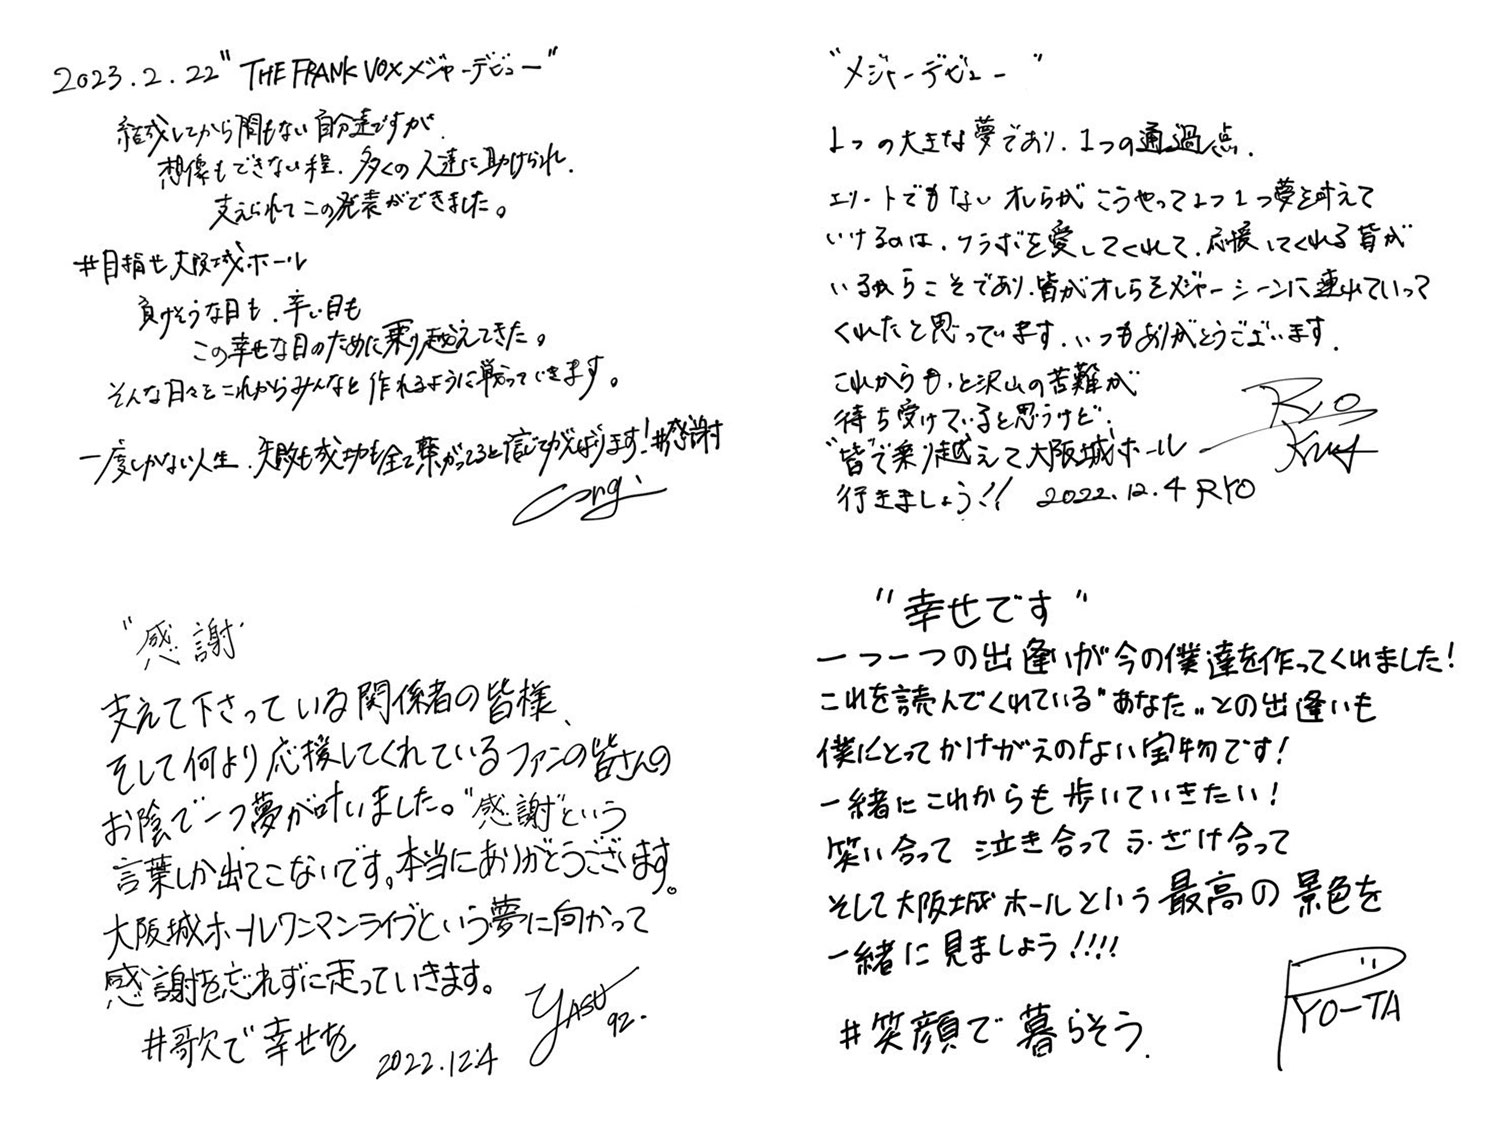 2023.2.22 "THE FRANK VOXメジャーデビュー"
結成してから間もない自分達ですが、
想像もできない程、多くの人達に助けられ、
支えられてこの発表ができました。
#目指せ大阪城ホール
負けそうな日も、辛い日も
この幸せな日のために乗り越えてきた。
そんな日々をこれからみんなと作れるように戦っていきます。
一度しかない人生、失敗も成功も全て繋がってると信じてがんばります!#感謝
"メジャーデビュー"
1つの大きな夢であり、1つの通過点。
エリートでもないオレらがこうやって1つ1つ夢を叶えて
いけるのは、フラボを愛してくれて、応援してくれる皆が
いるからこそであり、皆がオレらをメジャーシーンに連れていって
くれたと思っています。いつもありがとうございます。
これからもっと沢山の苦難が
待ち受けていると思うけど、
"皆"で乗り越えて大阪城ホール
行きましょう!! 2022.12.4 RYO
"感謝"
支えて下さっている関係者の皆様、
そして何より応援してくれているファンの皆さんの
お陰で一つ夢が叶いました。"感謝"という
言葉しか出てこないです。本当にありがとうございます。
大阪城ホールワンマンライブという夢に向かって
感謝を忘れずに走っていきます。
#歌で幸せを 2022.12.4 YASU 92.
"幸せです"
一つ一つの出逢いが今の僕達を作ってくれました!
これを読んでくれている"あなた"との出逢いも
僕にとってかけがえのない宝物です!
一緒にこれからも歩いていきたい!
笑い合って 泣き合って ふざけ合って
そして大阪城ホールという最高の景色を
一緒に見ましょう!!!!
#笑顔で暮らそう。
YO-TA